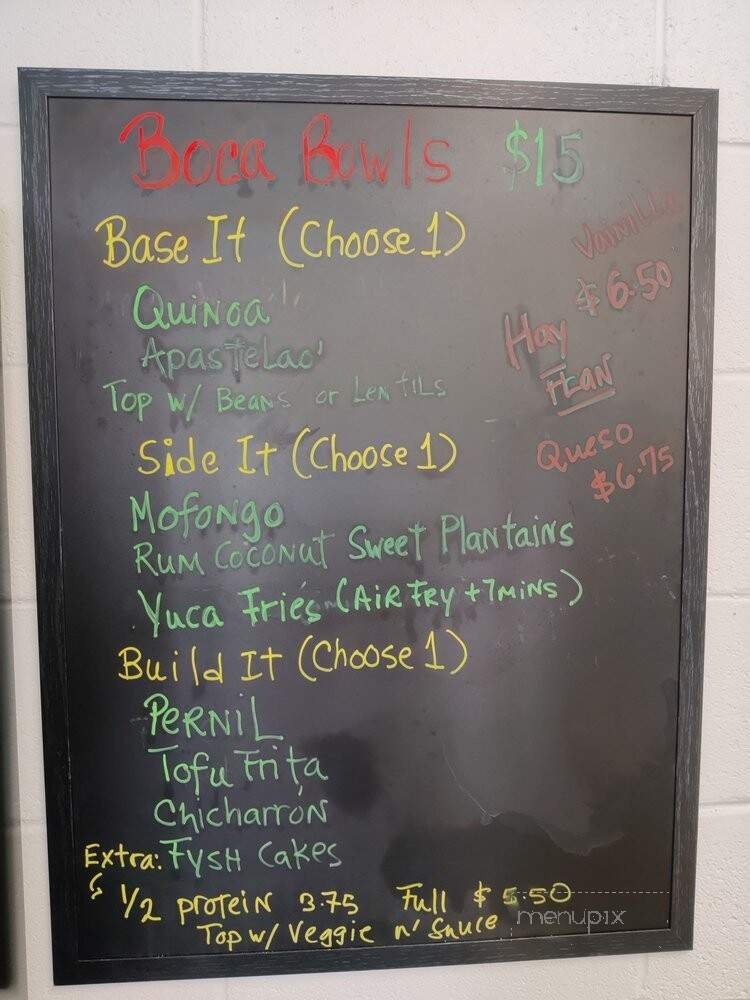 Boca Bowls $15
Base It (Choose 1)
Quinoa
Apastelao'
Top w/ Beans or Lentils
Side It (Choose 1)
Mofongo
Rum Coconut Sweet Plantains
Yuca Fries (Air Fry +7mins)
Build It (Choose 1)
Pernil
Tofu Frita
Chicharrón
Fysh Cakes
Extra:
1/2 protein 3.75 Full $5.50
Top w/ Veggie n' Sauce
Vainilla
$6.50
Hay
Flan
Queso
$6.75
menupix